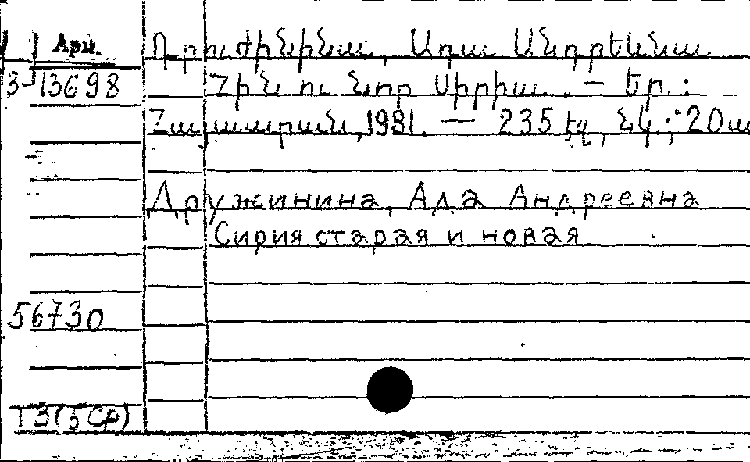 Արմ. Դրուժինինա, Ադա Անդրեևնա
3-13698 Հին ու նոր Սիրիա. — Եր.:
Հայաստան, 1981. — 235 էջ, նկ.; 20
Дружинина, Ада Андреевна
Сирия старая и новая
56730
Т3(5Ср)